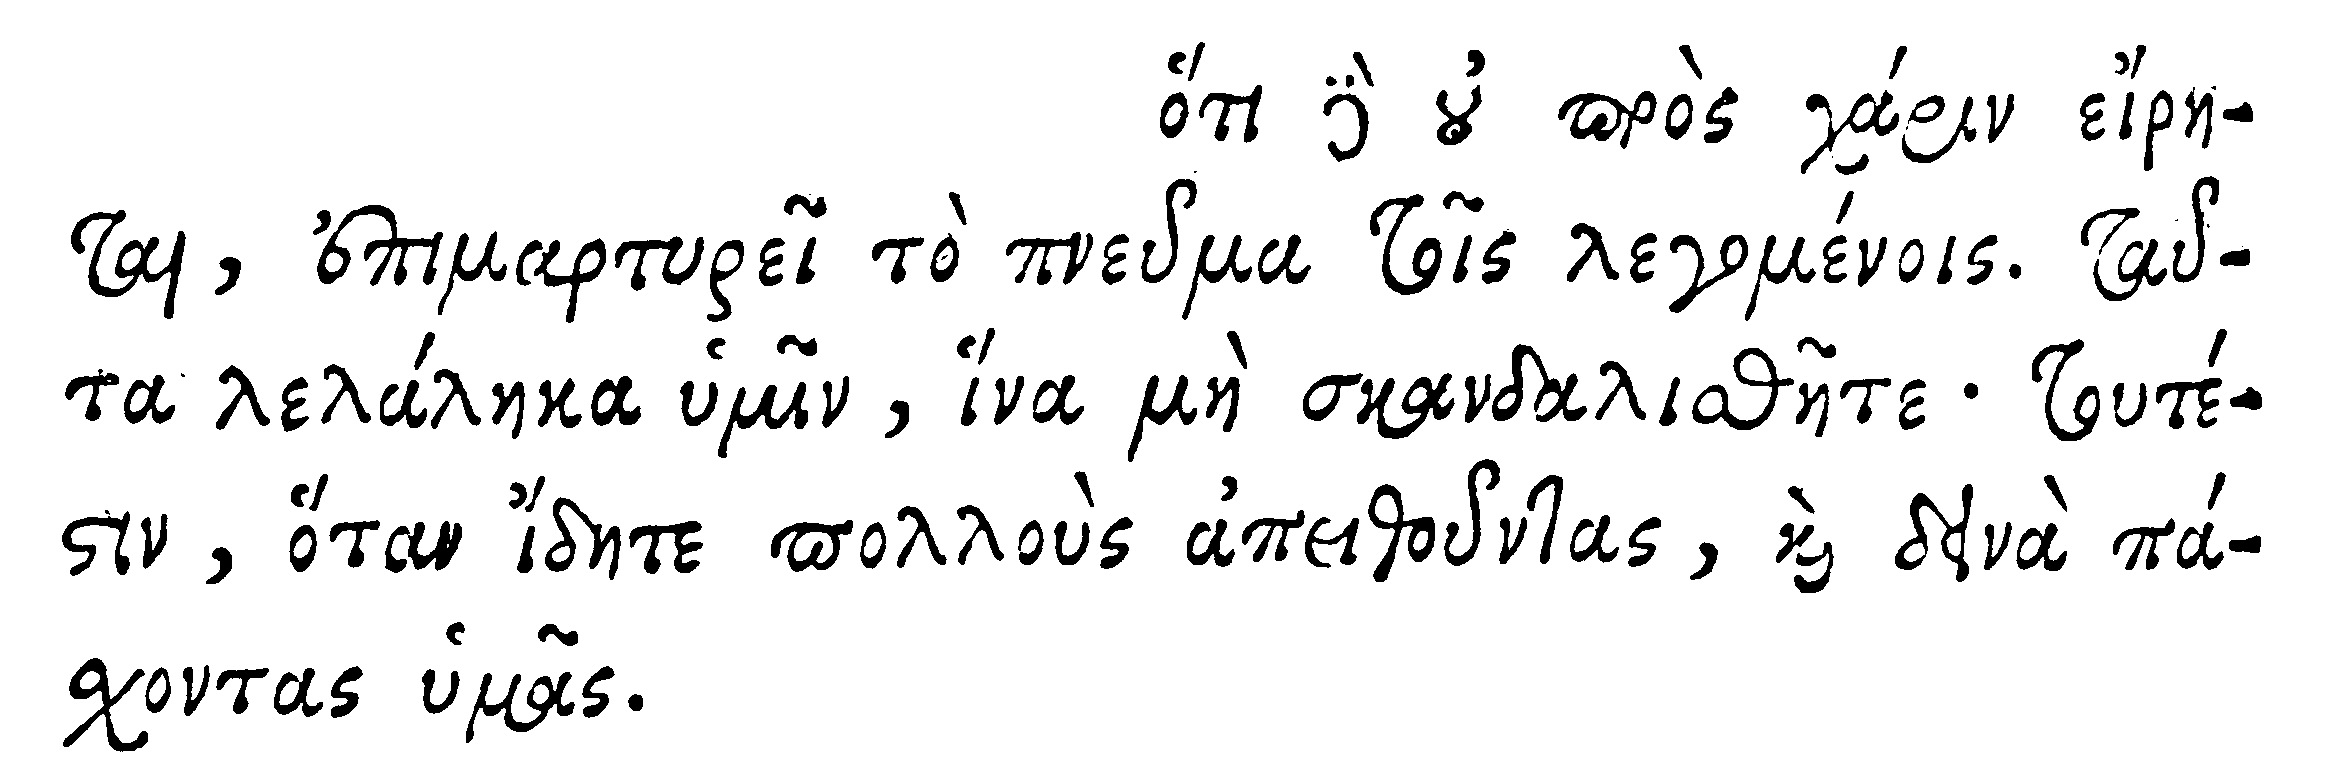 ὅτι γὰρ οὐ πρὸς χάριν εἴρη-
ται, ἐπιμαρτυρεῖ τὸ πνεῦμα τοῖς λεγομένοις. ταῦ-
τα λελάληκα ὑμῖν, ἵνα μὴ σκανδαλισθῆτε· τουτέ-
στιν, ὅταν ἴδητε πολλοὺς ἀπειθοῦντας, καὶ δεινὰ πά-
σχοντας ὑμᾶς.